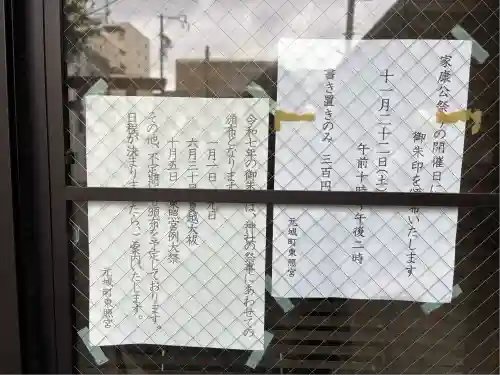 家康公祭りの開催日に
御朱印を頒布いたします
十一月二十二日(土)
午前十時〜午後二時
書き置きのみ 三百円
元城町東照宮
令和七年の御朱印は、神社の祭事にあわせての
頒布となります
一月一日 元旦
六月三十日 夏越大祓
十月五日 東照宮例大祭
その他、不定期にも頒布を予定しております。
日程が決まりましたら、ご案内いたします。
元城町東照宮